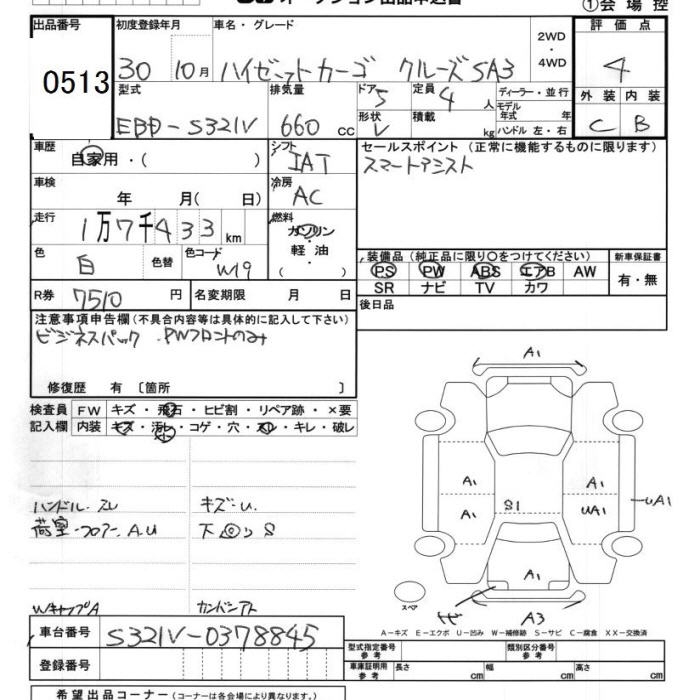 オークション出品申込書
①会場控
出品番号 初度登録年月 車名・グレード 評価点
0513
30 10月 ハイゼットカーゴ クルーズSA3 2WD・4WD 4
型式 排気量 ドア 5 定員 4人 ディーラー・並行 外装 内装
EBD-S321V 660cc 形状 V 積載 kg モデル年式 年 ハンドル 左・右 C B
車歴 自家用・( ) シフト IAT セールスポイント(正常に機能するものに限ります)
スマートアシスト
車検 年 月(日) 冷房 AC
走行 1万7千433km 燃料 ガソリン・軽油・( )
色 白 色替 色コード W19
装備品(純正品に限り○をつけてください) 新車保証書
PS PW ABS エアB AW 有・無
SR ナビ TV カワ
R券 7510円 名変期限 月 日 後日品
注意事項申告欄(不具合内容等は具体的に記入して下さい)
ビジネスパック PWフロントのみ
修復歴 有 〔箇所 〕
検査員 FW キズ・飛石・ヒビ割・リペア跡・×要
記入欄 内装 キズ・汚れ・コゲ・穴・スレ・キレ・破レ
A1
A1 A1
A1 S1 UA1 UA1
A1
A3
ハンドル・スレ キズ・U.
荷室・フロアー A.U 下回りS
WキャップA
スペア
A-キズ E-エクボ U-凹み W-補修跡 S-サビ C-腐食 XX-交換済
車台番号 S321V-0378845
型式指定番号 参考 類別区分番号 参考
登録番号
車庫証明用 参考 長さ cm 幅 cm 高さ cm
希望出品コーナー(コーナーは各会場により異なります。)